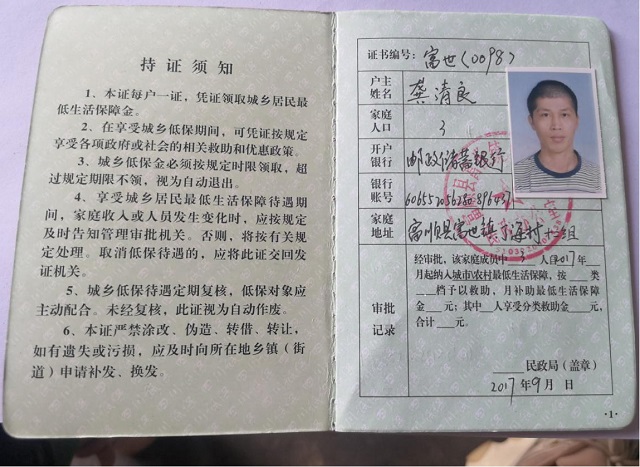 持证须知
1、本证每户一证，凭证领取城乡居民最
低生活保障金。
2、在享受城乡低保期间，可凭证按规定
享受各项政府或社会的相关救助和优惠政策。
3、城乡低保金必须按规定时限领取，超
过规定期限不领，视为自动退出。
4、享受城乡居民最低生活保障待遇期
间，家庭收入或人员发生变化时，应按规定
及时告知管理审批机关。否则，将按有关规
定处理。取消低保待遇的，应将此证交回发
证机关。
5、城乡低保待遇定期复核，低保对象应
主动配合。未经复核，此证视为自动作废。
6、本证严禁涂改、伪造、转借、转让，
如有遗失或污损，应及时向所在地乡镇（街
道）申请补发、换发。
证书编号：富世（0098）
户主
姓名
龚清良
家庭
人口
3
开户
银行
邮政储蓄银行
银行
账号
家庭
地址
富顺县富世镇
村十组
审批
记录
经审批，该家庭成员中3人从2017年
月起纳入城市/农村最低生活保障，按 类
档予以救助，月补助最低生活保障
金 元；其中 人享受分类救助金 元，
合计 元。
民政局（盖章）
2017年9月 日
·1·